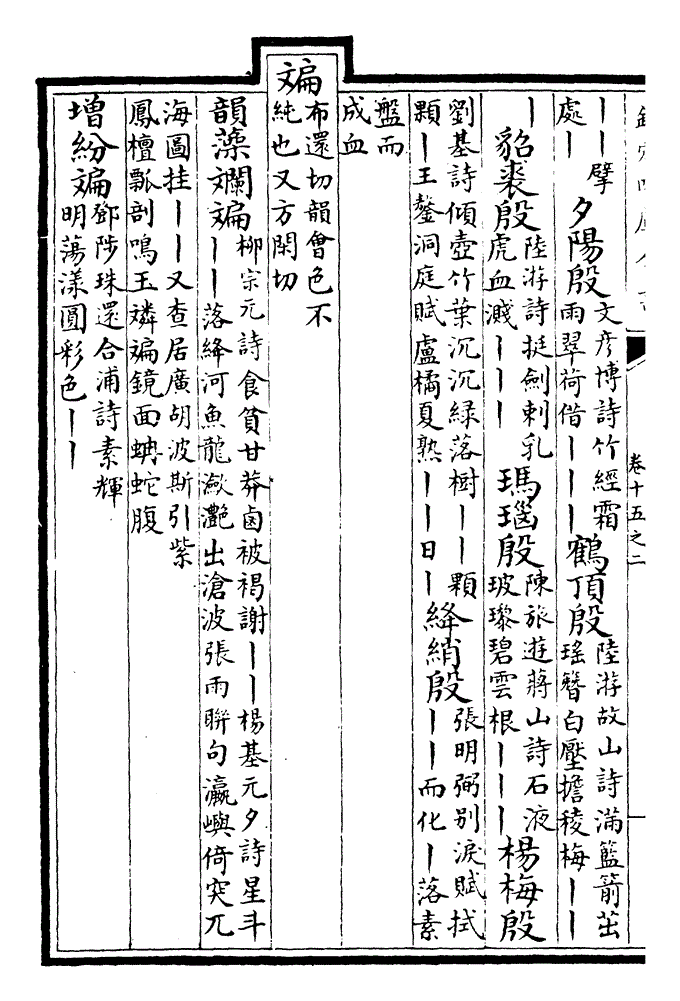 卷十五之二
丨丨擘
處丨
夕陽殷
文彥博詩竹經霜
雨翠荷借丨丨丨
鶴頂殷
陸游故山詩滿籃箭茁
瑤簪白壓擔稜梅丨丨
丨
貂裘殷
陸游詩挺劍刺乳
虎血濺丨丨丨
瑪瑙殷
陳旅遊蔣山詩石液
玻瓈碧雲根丨丨丨
楊梅殷
劉基詩傾壺竹葉沉沉緑落樹丨丨顆
顆丨王鏊洞庭賦盧橘夏熟丨丨日丨
絳綃殷
張明弼别淚賦拭
丨丨而化丨落素
盤而
成血
斒
布還切韻會色不
純也又方閑切
韻藻斕斒
柳宗元詩食貧甘莽鹵被褐謝丨丨楊基元夕詩星斗
丨丨落絳河魚龍瀲灧出滄波張雨聨句瀛嶼倚突兀
海圖挂丨丨又查居廣胡波斯引紫
鳳檀瓢剖鳴玉璘斒鏡面蚺蛇腹
增紛斒
鄧陟珠還合浦詩素輝
明蕩漾圓彩色丨丨